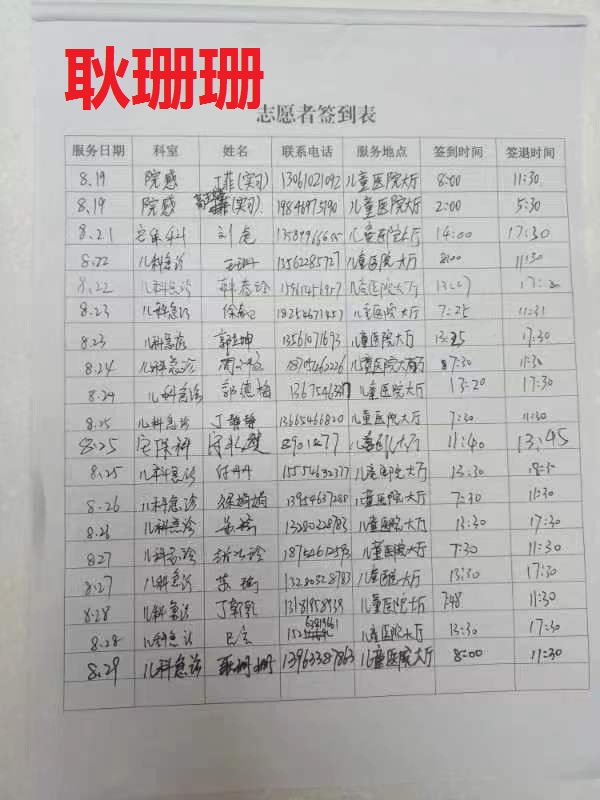 耿珊珊
志愿者签到表
服务日期 科室 姓名 联系电话 服务地点 签到时间 签退时间
8.19 院感 丁菲(实习) 13061021092 儿童医院大厅 8:00 11:30
8.19 院感 (实习) 19846975190 儿童医院大厅 2:00 5:30
8.21 安保科 刘 儿童医院大厅 14:00 17:30
8.22 儿科急诊 儿童医院大厅 8:00 11:30
8.22 儿科急诊 儿童医院大厅
8.23 儿科急诊 18254671457 儿童医院大厅 7:25 11:31
8.23 儿科急诊 13561071693 儿童医院大厅 17:30
8.24 儿科急诊 18705460226 儿童医院大厅 7:30 11:30
8.24 儿科急诊 郭德梅 儿童医院大厅 13:20 17:30
8.25 儿科急诊 丁静静 13665466820 儿童医院大厅 7:30 11:30
8.25 安保科 8901277 儿童医院大厅 11:40 13:45
8.25 儿科急诊 付丹丹 15554632377 儿童医院大厅 13:30
8.26 儿科急诊 徐娟娟 13954637288 儿童医院大厅 7:30 11:30
8.26 儿科急诊 13280328783 儿童医院大厅 13:30 17:30
8.27 儿科急诊 儿童医院大厅 7:30 11:30
8.27 儿科急诊 苏瑜 13280328783 儿童医院大厅 13:30 17:30
8.28 儿科急诊 13181958939 儿童医院大厅 7:48 11:30
8.28 儿科急诊 儿童医院大厅 13:30 17:30
8.29 儿科急诊 耿珊珊 13963387863 儿童医院大厅 8:00 11:30